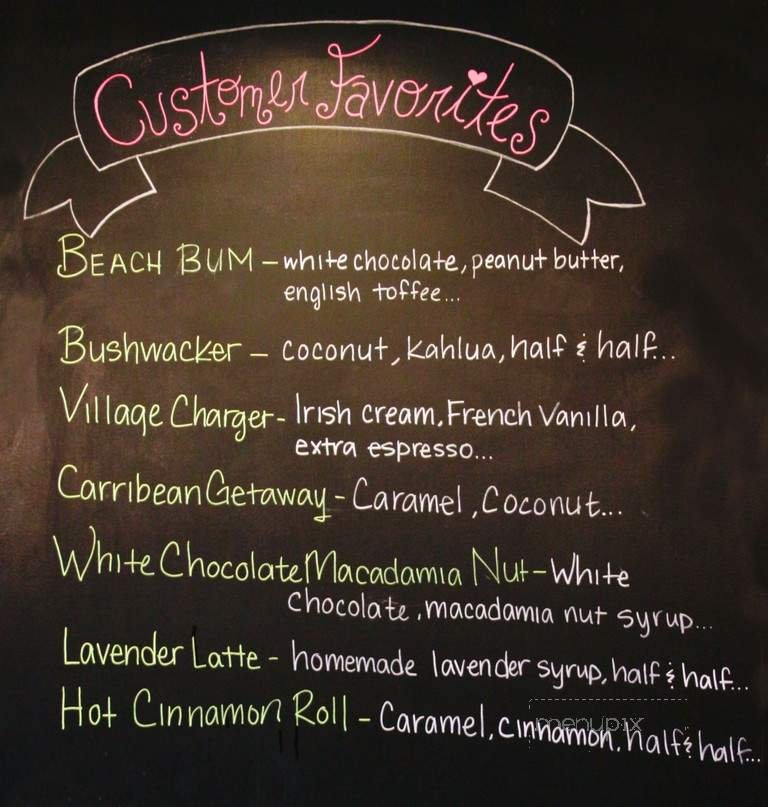 Customer Favorites
BEACH BUM - white chocolate, peanut butter,
english toffee...
Bushwacker - coconut, Kahlua, half & half...
Village Charger - Irish cream, French Vanilla,
extra espresso...
Carribean Getaway - Caramel, Coconut...
White Chocolate Macadamia Nut - White
Chocolate, macadamia nut syrup...
Lavender Latte - homemade lavender syrup, half & half...
Hot Cinnamon Roll - Caramel, cinnamon, half & half...
menupix